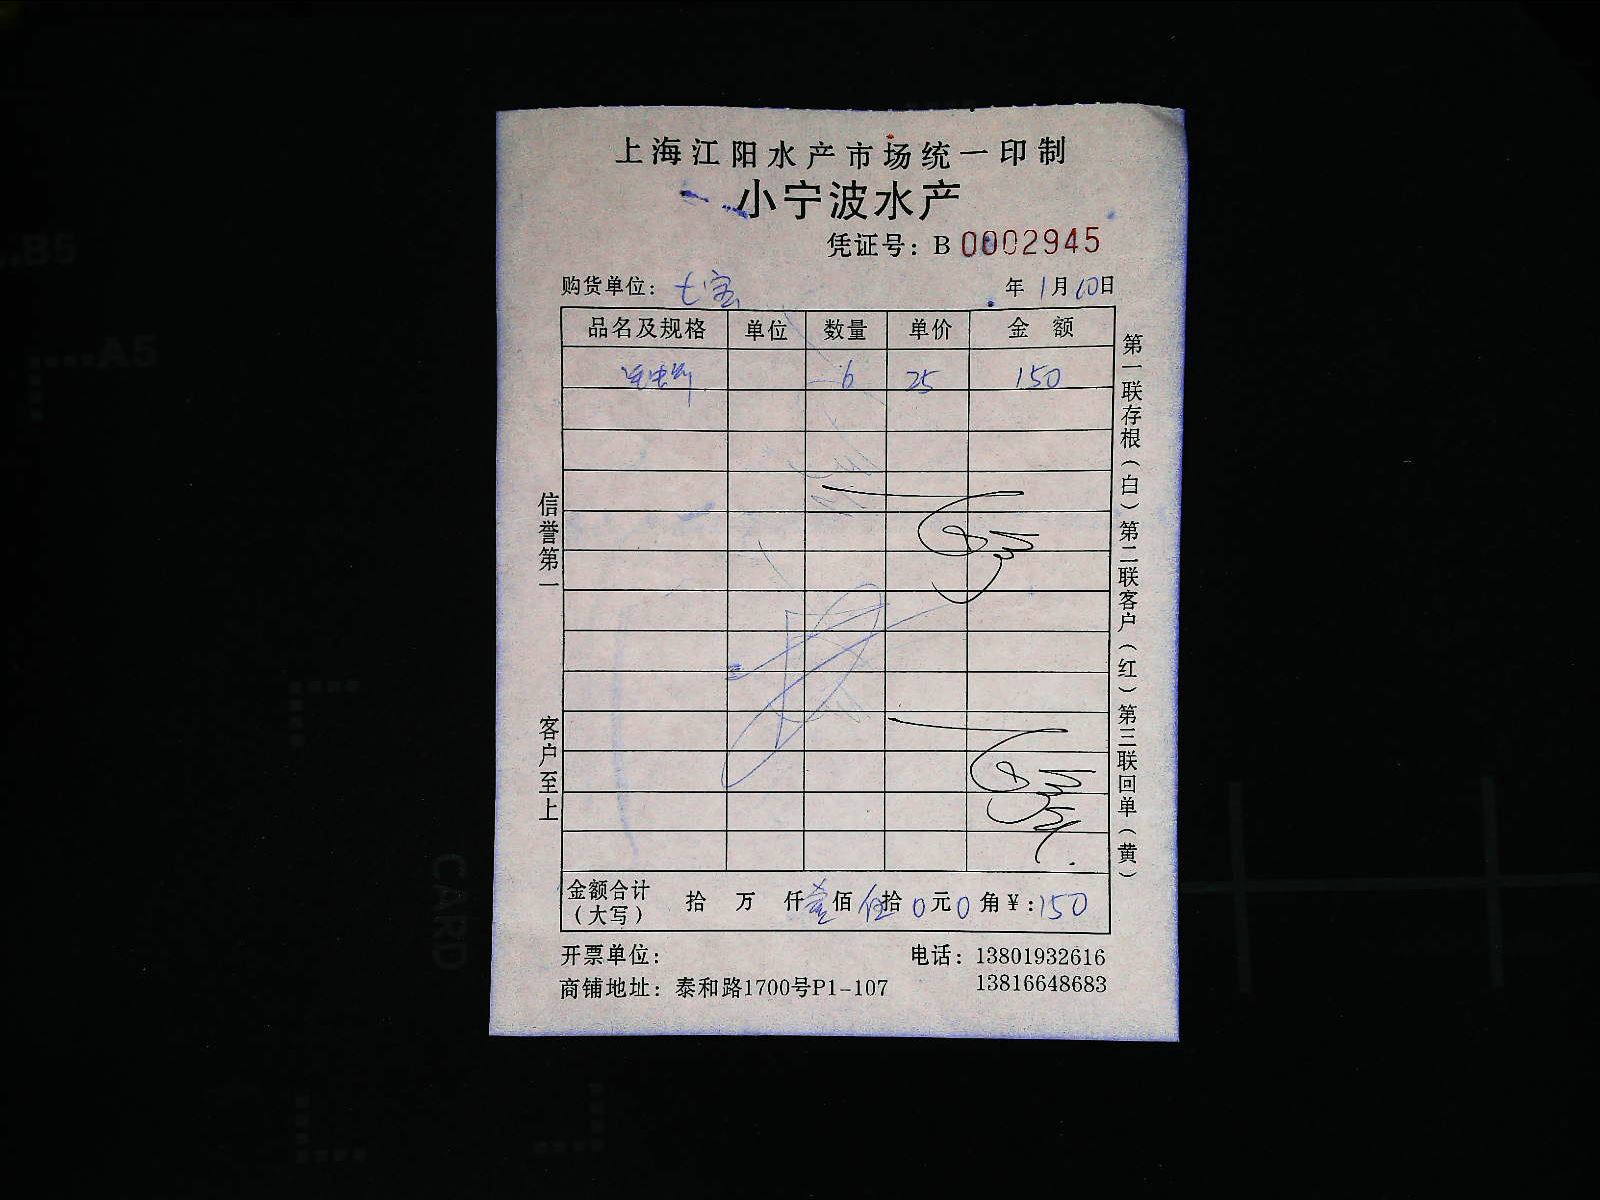 上海江阳水产市场统一印制
小宁波水产
凭证号：B 0002945
购货单位：七宝 年1月10日
品名及规格 单位 数量 单价 金 额
6 25 150
金额合计（大写） 拾 万 仟壹佰伍拾0元0角￥:150
开票单位： 电话：13801932616
商铺地址：泰和路1700号P1-107 13816648683
信誉第一 客户至上
第一联存根（白）第二联客户（红）第三联回单（黄）
B5
A5
CARD